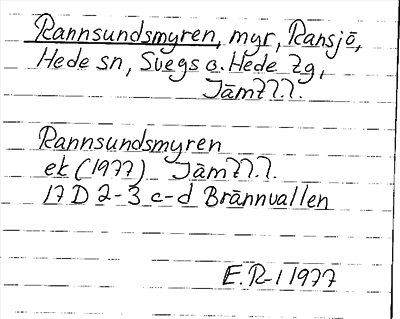 Rannsundsmyren, myr, Ransjö,
Hede sn, Svegs o. Hede Zg,
Rannsundsmyren
ek (1977)
17 D 2-3 c-d Brännvallen
E. R-l 1977